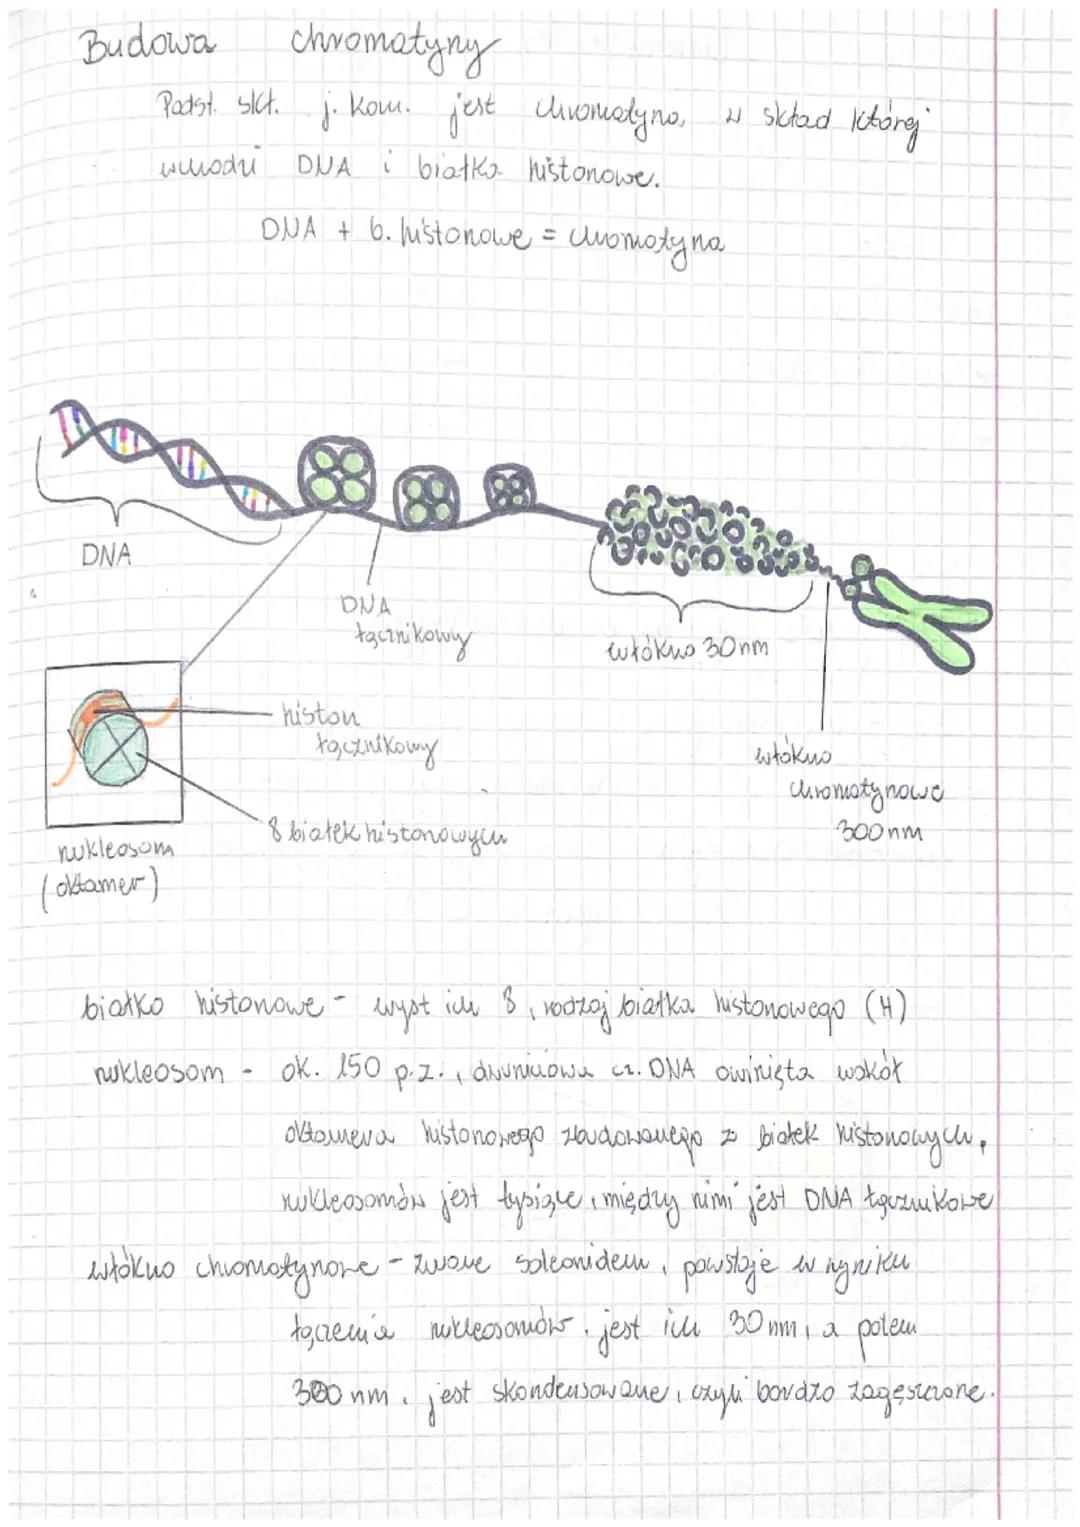 Budowa chromatyny
Podst. skł. j. kom. jest chromatyna, w skład której
wchodzi DNA i białka histonowe.
DNA + b. histonowe = chromatyna
DNA
DNA
łącznikowy
włókno 30nm
histon
łącznikowy
włókno
chromatynowe
300nm
8 białek histonowych
nukleosom
(oktamer)
białko histonowe - wyst ich 8, rodzaj białka histonowego (H)
nukleosom - ok. 150 p.z., dwuniciowa cz. DNA owinięta wokół
oktamera histonowego zbudowanego z białek histonowych,
nukleosomów jest tysiące, między nimi jest DNA łącznikowe
włókno chromatynowe - zwane soleonidem, powstaje w wyniku
łączenia nukleosomów, jest ich 30nm, a potem
300 nm, jest skondensowane, czyli bardzo zagęszczone.